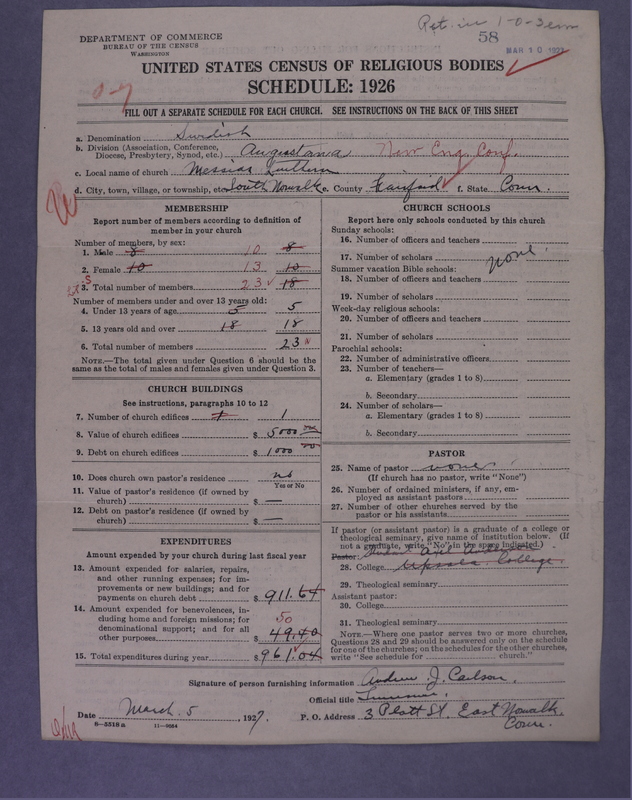 Ret. in 1-0-3
DEPARTMENT OF COMMERCE
BUREAU OF THE CENSUS
WASHINGTON
58
MAR 10 1927
UNITED STATES CENSUS OF RELIGIOUS BODIES
SCHEDULE: 1926
FILL OUT A SEPARATE SCHEDULE FOR EACH CHURCH. SEE INSTRUCTIONS ON THE BACK OF THIS SHEET
a. Denomination Swedish
b. Division (Association, Conference, Diocese, Presbytery, Synod, etc.) Augustana New Eng. Conf.
c. Local name of church Messias Luthern
d. City, town, village, or township, etc. South Norwalk e. County Fairfield f. State Conn.
MEMBERSHIP
Report number of members according to definition of member in your church
Number of members, by sex:
1. Male 8 10 8
2. Female 10 13 10
3. Total number of members 23 18
Number of members under and over 13 years old:
4. Under 13 years of age 5 5
5. 13 years old and over 18 18
6. Total number of members 23
NOTE.—The total given under Question 6 should be the same as the total of males and females given under Question 3.
CHURCH BUILDINGS
See instructions, paragraphs 10 to 12
7. Number of church edifices 1 1
8. Value of church edifices $ 5000
9. Debt on church edifices $ 1000
10. Does church own pastor's residence no
Yes or No
11. Value of pastor's residence (if owned by church) $ —
12. Debt on pastor's residence (if owned by church) $ —
EXPENDITURES
Amount expended by your church during last fiscal year
13. Amount expended for salaries, repairs, and other running expenses; for improvements or new buildings; and for payments on church debt $ 911.64
14. Amount expended for benevolences, including home and foreign missions; for denominational support; and for all other purposes 50 49.40
15. Total expenditures during year $ 961.04
CHURCH SCHOOLS
Report here only schools conducted by this church
Sunday schools:
16. Number of officers and teachers
17. Number of scholars none.
Summer vacation Bible schools:
18. Number of officers and teachers
19. Number of scholars
Week-day religious schools:
20. Number of officers and teachers
21. Number of scholars
Parochial schools:
22. Number of administrative officers
23. Number of teachers—
a. Elementary (grades 1 to 8)
b. Secondary
24. Number of scholars—
a. Elementary (grades 1 to 8)
b. Secondary
PASTOR
25. Name of pastor none
(If church has no pastor, write "None")
26. Number of ordained ministers, if any, employed as assistant pastors
27. Number of other churches served by the pastor or his assistants
If pastor (or assistant pastor) is a graduate of a college or theological seminary, give name of institution below. (If not a graduate, write "No" in the space indicated.)
Pastor:
28. College Upsala College
29. Theological seminary
Assistant pastor:
30. College
31. Theological seminary
NOTE.—Where one pastor serves two or more churches, Questions 28 and 29 should be answered only on the schedule for one of the churches; on the schedules for the other churches, write "See schedule for church."
Signature of person furnishing information Andrew J. Carlson.
Official title
Date March 5, 1927.
P. O. Address 3 Platt St. East Norwalk, Conn.
8—5518a 11—9084